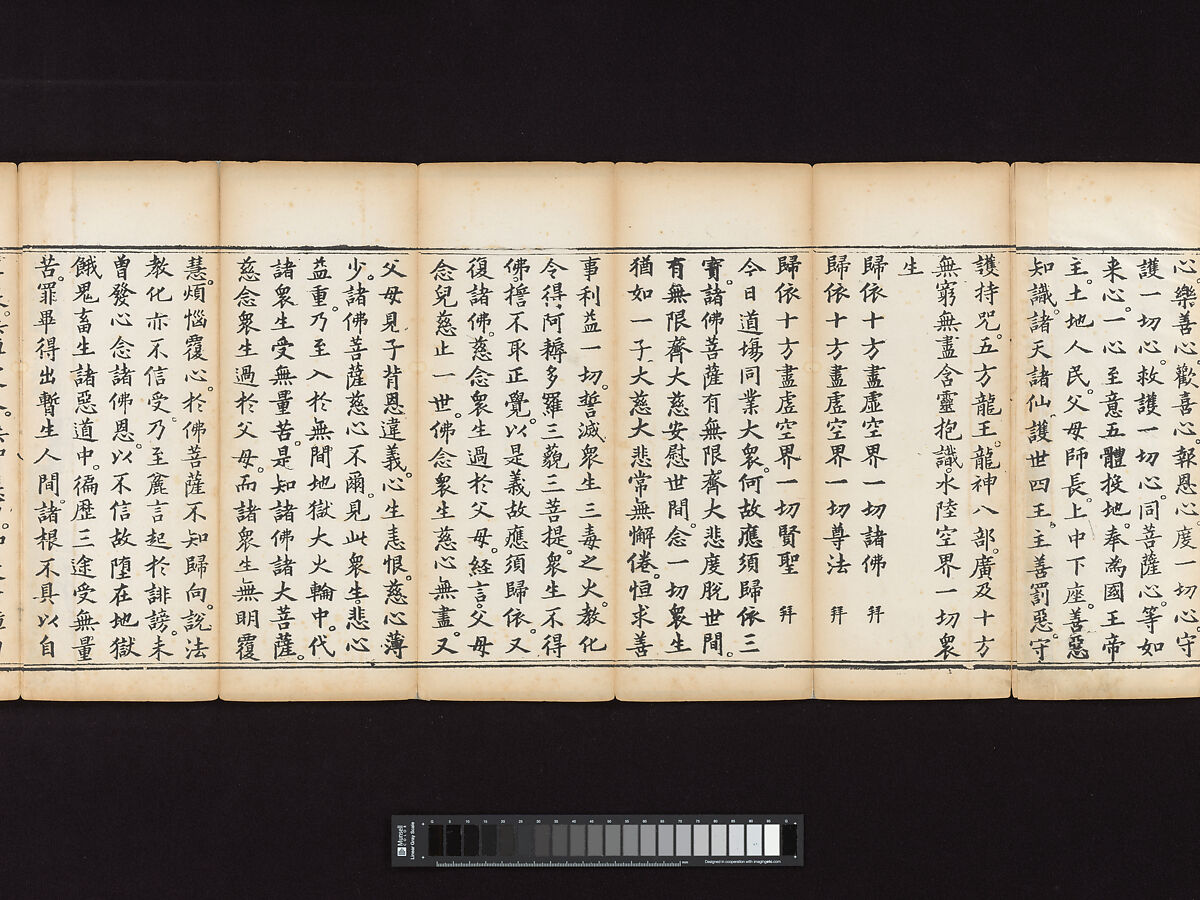 心。樂善心。歡喜心。報恩心。度一切心。守
護一切心。救護一切心。同菩薩心。等如
来心。一心至意五體投地。奉為國王帝
主。土地人民。父母師長。上中下座。善惡
知識。諸天諸仙。護世四王。主善罰惡。守
護持咒。五方龍王。龍神八部。廣及十方
無窮無盡含靈抱識。水陸空界一切衆
生
歸依十方盡虛空界一切諸佛 拜
歸依十方盡虛空界一切尊法 拜
歸依十方盡虛空界一切賢聖 拜
今日道場同業大衆。何故應須歸依三
寶。諸佛菩薩有無限齊大悲度脫世間。
有無限齊大慈安慰世間。念一切衆生
猶如一子大慈大悲常無懈倦。恒求善
事利益一切。誓滅衆生三毒之火。教化
令得。阿耨多羅三藐三菩提。衆生不得
佛。誓不取正覺。以是義故應須歸依。又
復諸佛。慈念衆生過於父母。經言。父母
念兒慈止一世。佛念衆生慈心無盡。又
父母見子背恩違義。心生恚恨。慈心薄
少。諸佛菩薩慈心不爾。見此衆生。悲心
益重。乃至入於無間地獄大火輪中。代
諸衆生受無量苦。是知諸佛諸大菩薩。
慈念衆生過於父母。而諸衆生無明覆
慧。煩惱覆心。於佛菩薩不知歸向。說法
教化亦不信受。乃至麄言起於誹謗。未
曾發心念諸佛恩。以不信故堕在地獄
餓鬼畜生諸惡道中。徧歷三途受無量
苦。罪畢得出暫生人間。諸根不具以自
Munsell
COLOR
Linear Gray Scale
Designed in cooperation with imagingetc.com